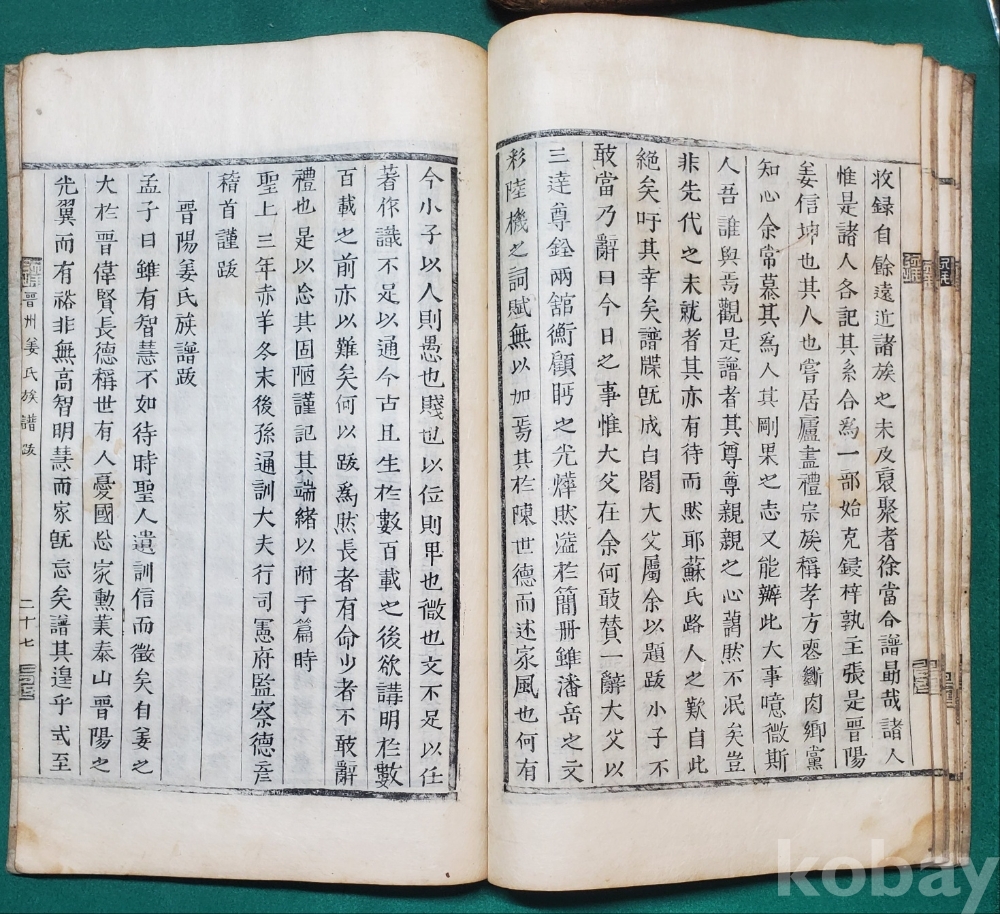 收録自餘遠近諸族之未及裒聚者徐當合譜勗哉諸人
惟是諸人各記其系合爲一部始克鋟梓孰主張是晉陽
姜信坤也其人也嘗居廬盡禮宗族稱孝方喪斷肉鄉黨
知心余常慕其爲人其剛果之志又能辦此大事噫微斯
人吾誰與焉觀是譜者其尊尊親親之心藹然不泯矣豈
非先代之未就者其亦有待而然耶蘇氏路人之歎自此
絶矣吁其幸矣譜牒旣成白閣大父屬余以題跋小子不
敢當乃辭曰今日之事惟大父在余何敢贊一辭大父以
三達尊銓兩舘衡顧眄之光燁然溢於簡册雖潘岳之文
彩陸機之詞賦無以加焉其於陳世德而述家風也何有
今小子以人則愚也賤也以位則卑也微也文不足以任
著作識不足以通今古且生於數百載之後欲講明於數
百載之前亦以難矣何以跋爲然長者有命少者不敢辭
禮也是以忘其固陋謹記其端緒以附于篇時
聖上三年赤羊冬末後孫通訓大夫行司憲府監察德彦
稽首謹跋
晉陽姜氏族譜跋
孟子曰雖有智慧不如待時聖人遺訓信而徵矣自姜之
大於晉偉賢長德稱世有人憂國忘家勳業泰山晉陽之
光翼而有裕非無高智明慧而家旣忘矣譜其遑乎式至
晋州姜氏族譜 跋
二十七
kobay